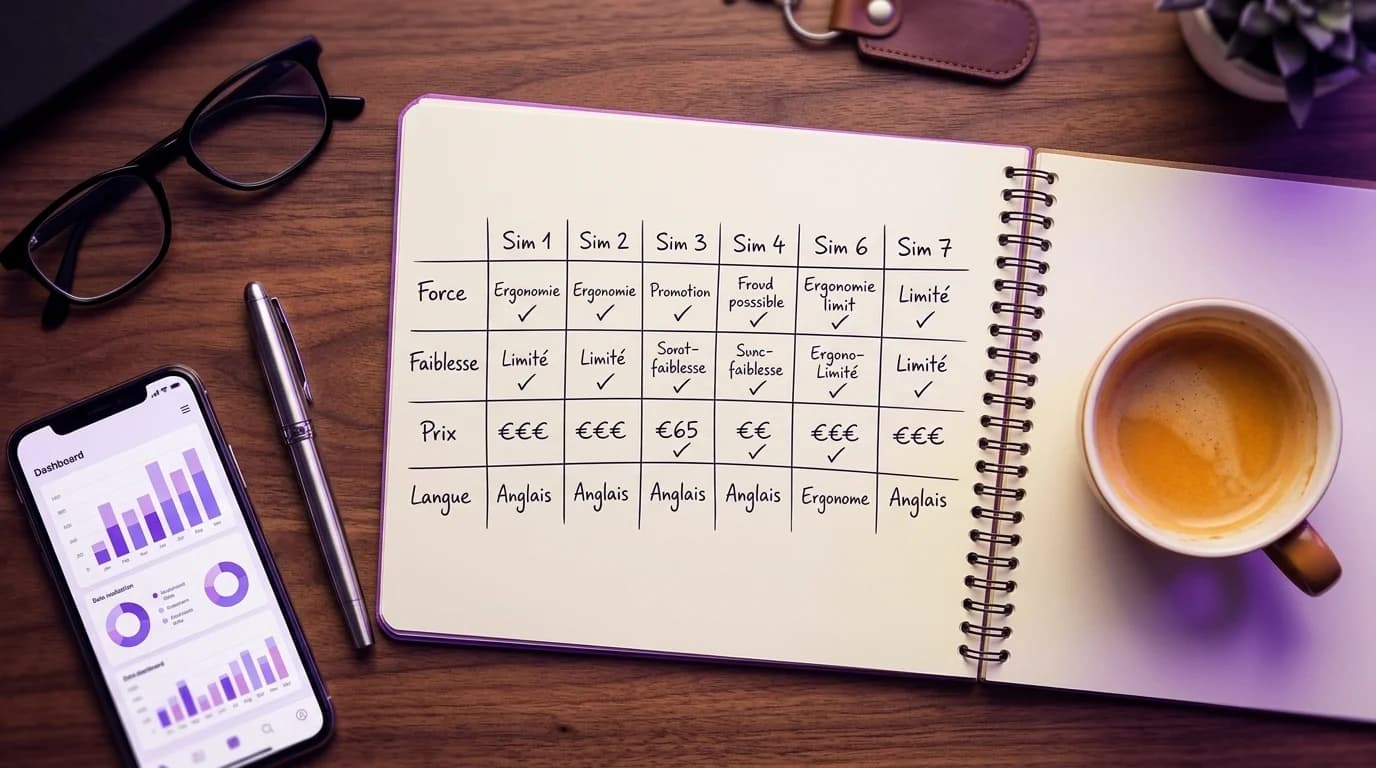 Sim 1 Sim 2 Sim 3 Sim 4 Sim 6 Sim 7
Force Ergonomie ✓ Ergonomie ✓ Promotion ✓ Froud posssible ✓ Ergonomie limit ✓ Limité ✓
Faiblesse Limité ✓ Limité ✓ Sorat-faiblesse ✓ Sunc-faiblesse ✓ Ergono-Limité ✓ Limité ✓
Prix €€€ €€€ €65 ✓ €€ ✓ €€€ ✓ €€€
Langue Anglais Anglais Anglais Anglais Ergonome Anglais
Dashboard